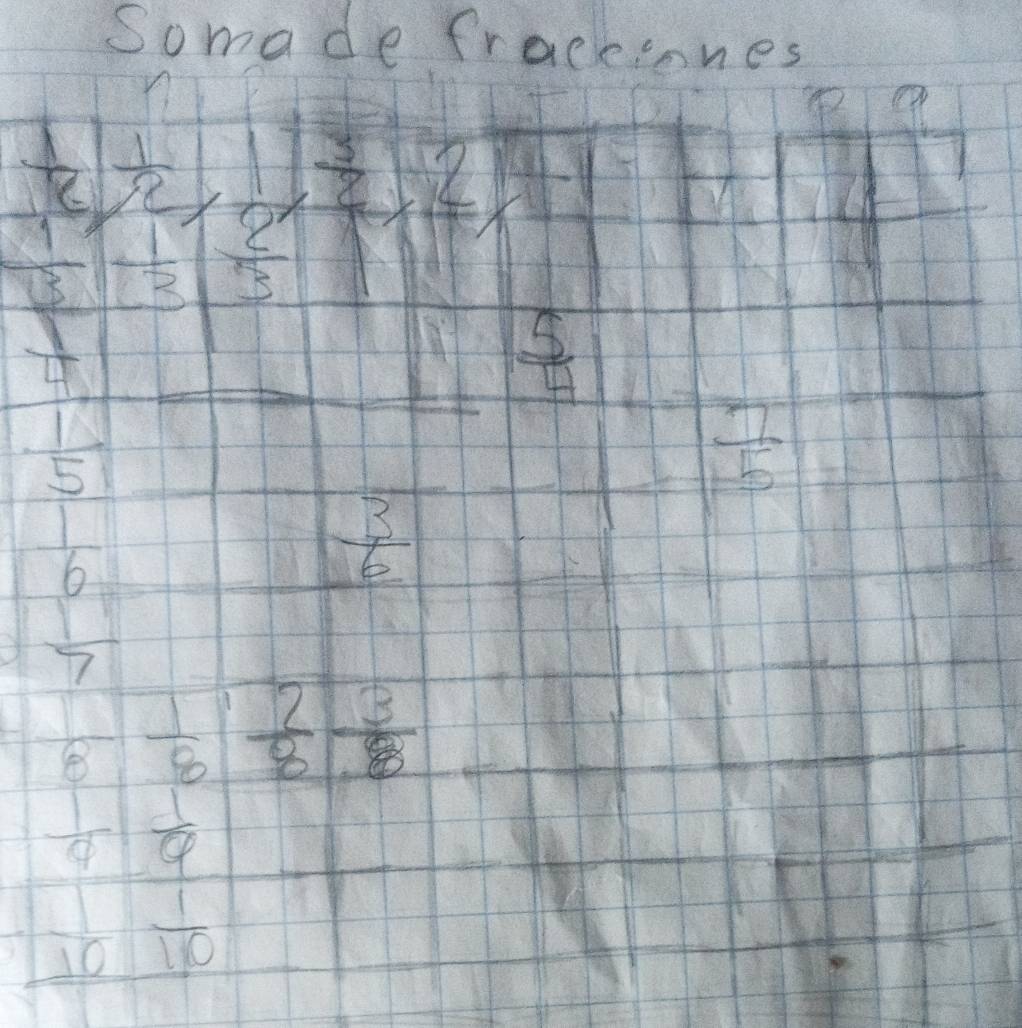 Soma de fracciones
1/2, 1/2, 1, 3/2, 2,
1/3 1/3 2/3
1/4 5/4
1/5 7/5
1/6 3/6
1/7
1/8 1/8 2/8 3/8
1/9 1/9
1/10 1/10